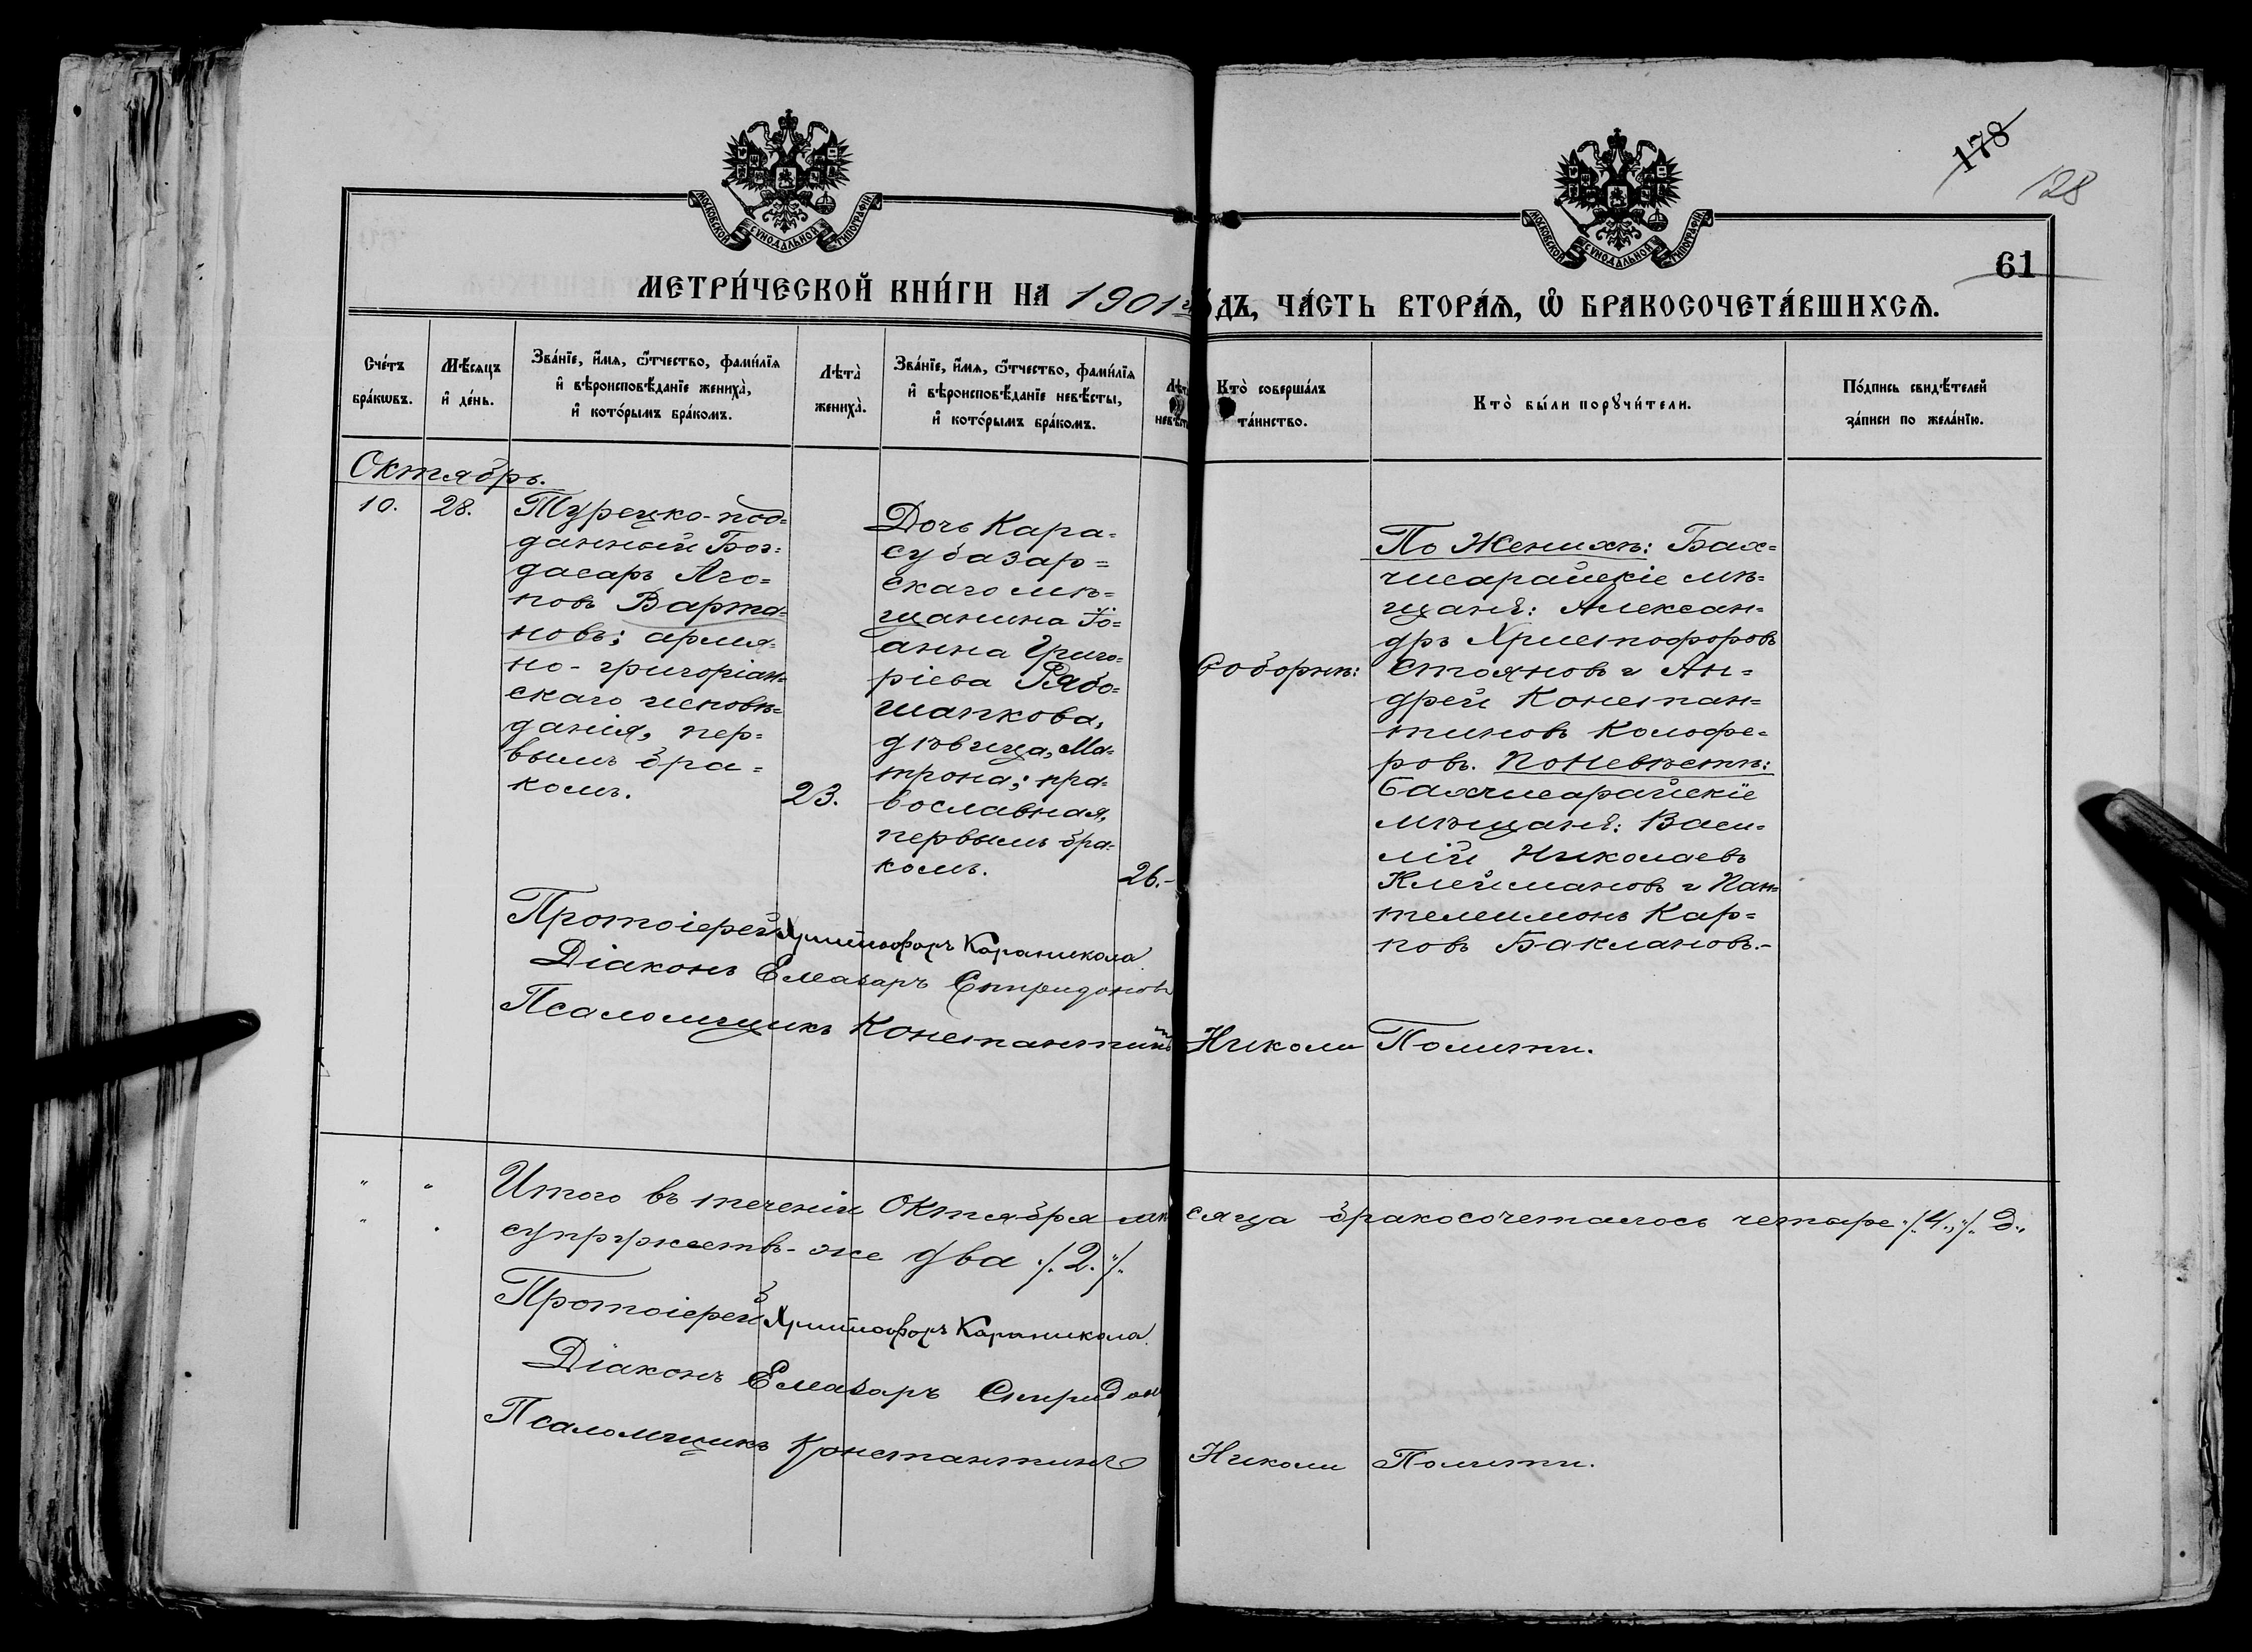 МОСКОВСКОЙ СѴНОДАЛЬНОЙ ТИПОГРАФІИ
МОСКОВСКОЙ СѴНОДАЛЬНОЙ ТИПОГРАФІИ
178
128
61
МЕТРИ́ЧЕСКОЙ КНИ́ГИ НА 1901 го́ДЪ, ЧА́СТЬ ВТОРА́Ѧ, Ѡ҆ БРАКОСОЧЕТА́ВШИХСѦ.
Сче́тъ
бра́кѡвъ.
Мѣ́сѧцъ
и҆ де́нь.
Зва́нїе, и҆́мѧ, ѻ҆́тчество, фами́лїѧ
и҆ вѣроисповѣ́данїе жениха̀,
и҆ кото́рымъ бра́комъ.
Лѣта̀
жениха̀.
Зва́нїе, и҆́мѧ, ѻ҆́тчество, фами́лїѧ
и҆ вѣроисповѣ́данїе невѣ́сты,
и҆ кото́рымъ бра́комъ.
Лѣт
невѣст
Кто̀ соверша́лъ
та́инство.
Кто̀ бы́ли порꙋчи́тели.
По́дпись свидѣ́телей
за́писи по жела́нїю.
Октябрь.
10.
28.
Турецко-под=
данный Бог=
дасаръ Аго=
повъ Варта=
новъ; армя=
но-григоріан=
скаго исповѣ=
данія, пер=
вымъ бра=
комъ.
23.
Дочь Кара=
субазар=
скаго мѣ=
щанина Іо=
анна Григо=
ріева Рябо=
шапкова,
дѣвица, Ма=
трона; пра=
вославная,
первымъ бра=
комъ.
26.-
Соборнѣ:
По Женихѣ: Бах=
чисарайскіе мѣ=
щанѣ: Алексан=
дръ Христофоровъ
Стояновъ и Ан=
дрей Констан=
тиновъ Колофе=
ровъ. По Невѣстѣ:
Бахчисарайскіе
мѣщанѣ: Васи=
лій Николаевъ
Клеймановъ и Пан=
телеимонъ Кар=
повъ Баклановъ.-
Протоіерей Христофоръ Караникола
Діаконъ Елеазаръ Спиридоновъ
Псаломщикъ Константинъ Николи Полити.
" " Итого въ теченіи Октября мѣсяца бракосочеталось четыре ./.4./.
" . супружествъ-же два ./.2./.
Протоіерей Христофоръ Караникола.
Діаконъ Елеазаръ Спиридон
Псаломщикъ Константинъ Николи Полити.